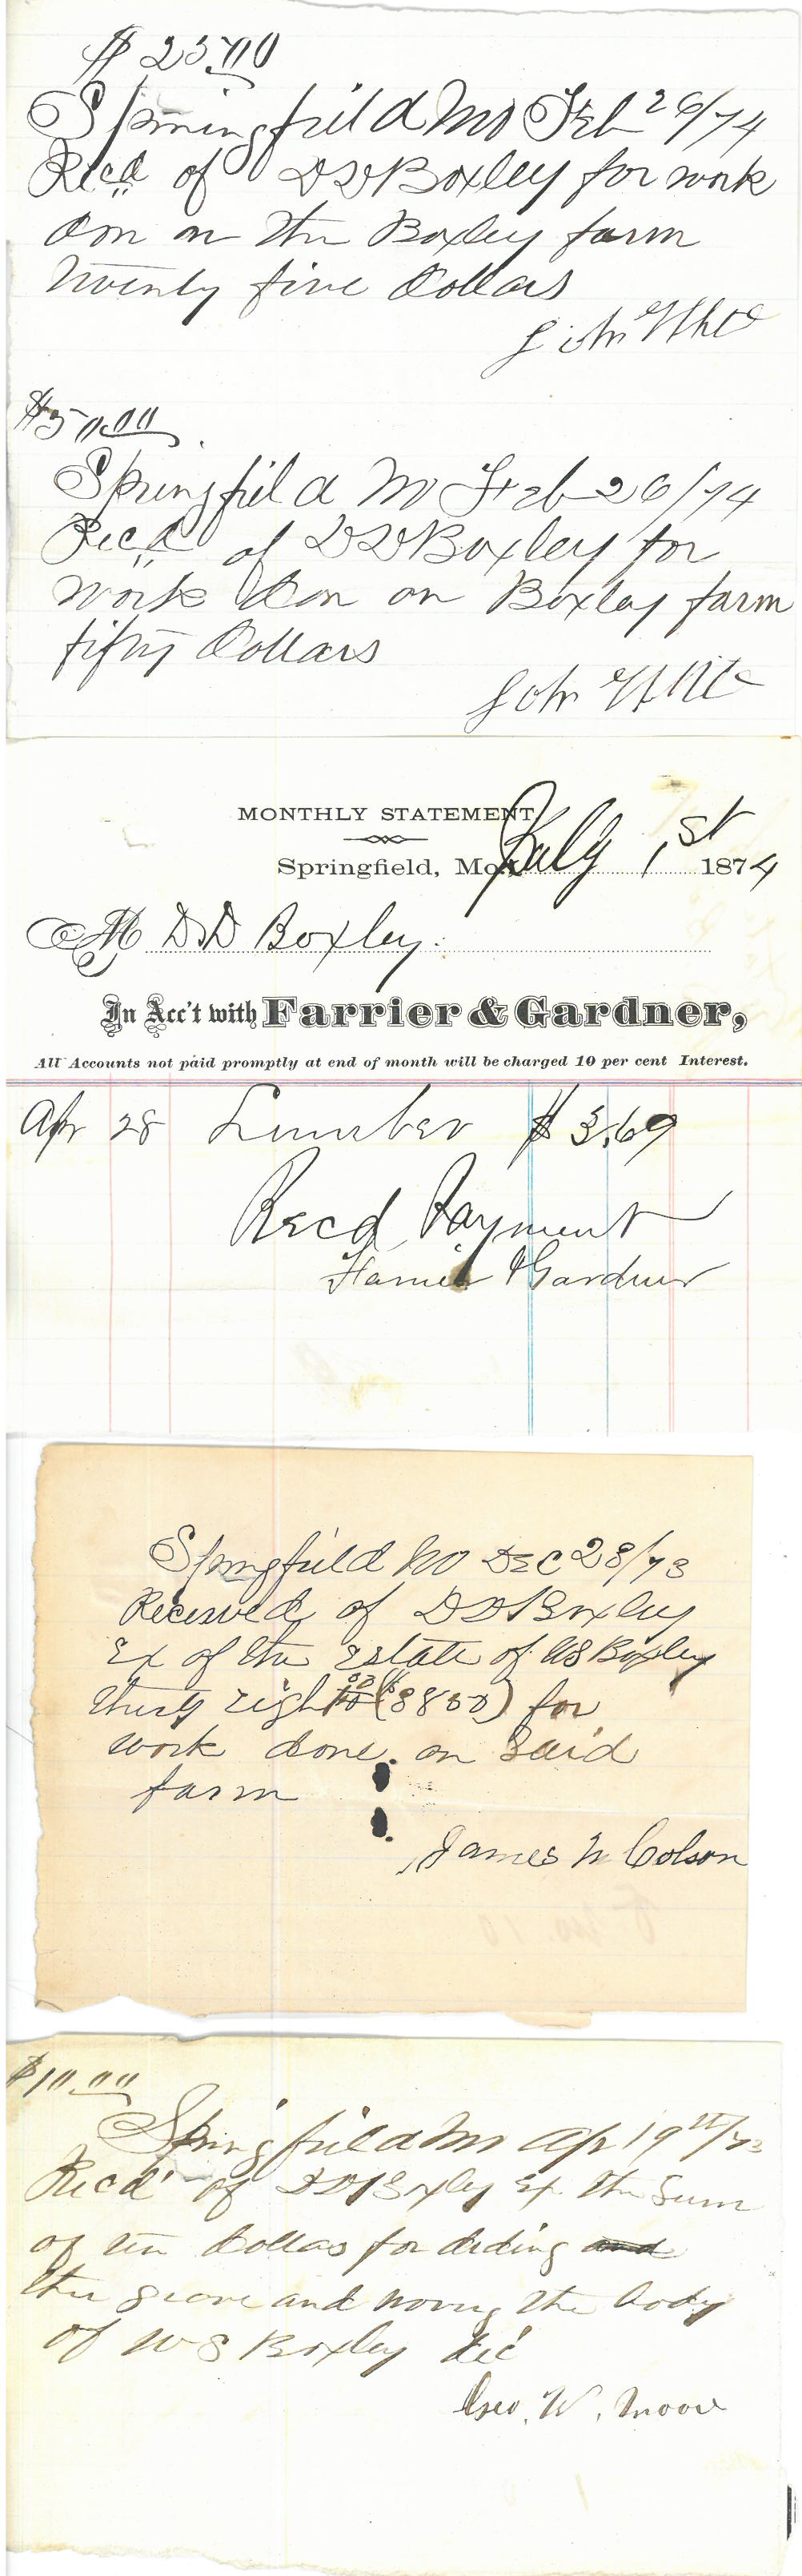 $25.00
Springfield Mo Feb 26/74
Recd of D D Boxley for work
don on the Boxley farm
twenty five Dollars
John White
$50.00
Springfild Mo Feb 26/74
Recd of D D Boxley for
work don on Boxley farm
fifty Dollars
John White
MONTHLY STATEMENT
Springfield, Mo., July 1st 1874
M D.D Boxley.
In Acc't with Farrier & Gardner,
All Accounts not paid promptly at end of month will be charged 10 per cent Interest.
Apr 28 Lumber $3.69
Recd Payment
Farrier & Gardner
Springfield Mo Dec 28/73
Received of D D Boxley
Ex of the Estate of WS Boxley
thirty eight ($3850) for
work done. on said
farm
James N Colson
$10.00
Springfield Mo Apr 19th/73
Recd of D D Boxley Ex. the sum
of ten Dollas for and
the grave and moving the body
of W S Boxley Dec
Geo. W. Moore